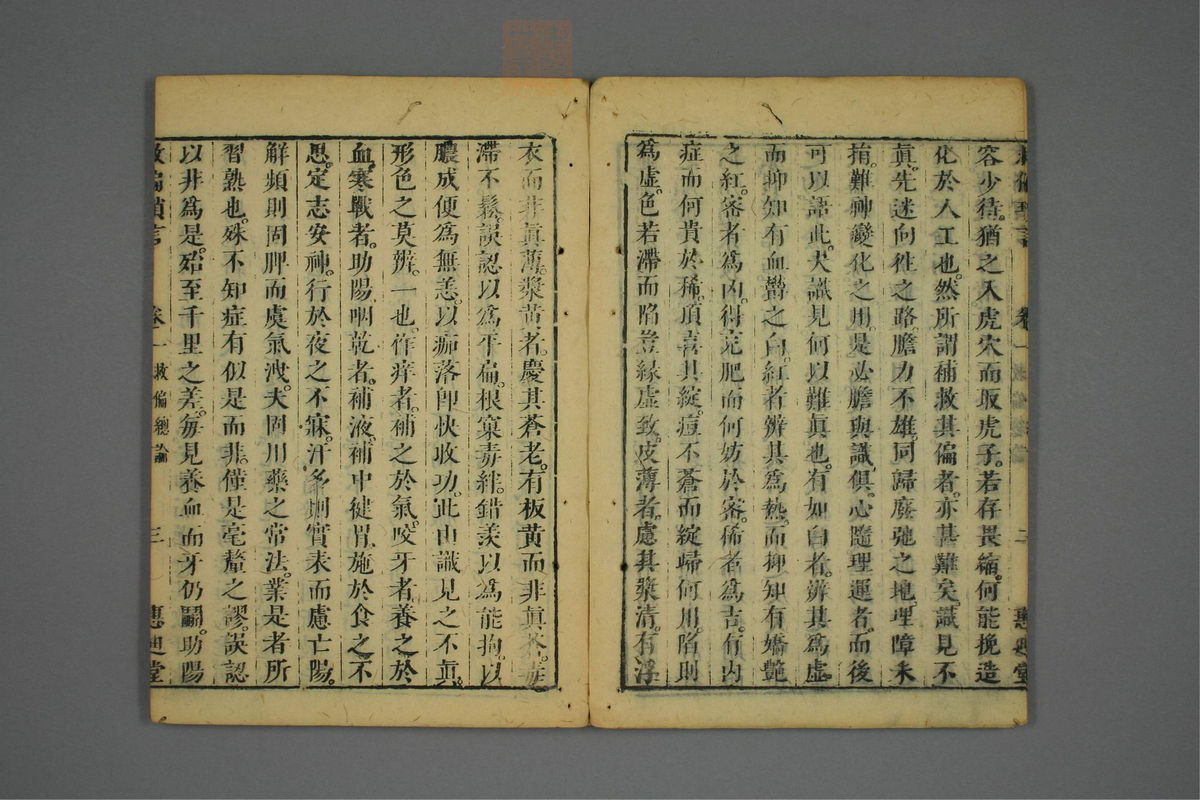 救偏瑣言 卷一 二 惠迪堂
容少待。猶之入虎穴而取虎子。若存畏縮。何能挽造
化於人工也。然所謂補救其偏者。亦甚難矣。識見不
眞。先迷向徃之路。膽力不雄。同歸廢弛之地。理障未
捐。難神變化之用。是必膽與識俱。心隨理運者。而後
可以語此。夫識見何以難眞也。有如白者。辨其爲虛。
而抑知有血欝之白。紅者辨其爲熱。而抑知有嬌艶
之紅。密者爲凶。得克肥而何妨於密。稀者爲吉。有內
症而何貴於稀。頂喜其綻。痘不蒼而綻歸何用。陷則
爲虛。色若滯而陷豈緣虛致。皮薄者。慮其漿清。有浮
衣而非眞薄。漿黄者。慶其蒼老。有板黄而非眞蒼。毒
滯不鬆。誤認以爲平扁。根窠毒絆。錯羨以爲能拘。以
膿成便爲無恙。以痂落卽快收功。此由識見之不眞。
形色之莫辨。一也。作痒者。補之於氣。咬牙者養之於
血。寒戰者。助陽。咽乾者。補液。補中健胃。施於食之不
思。定志安神。行於夜之不寐。汗多則實表而慮亡陽。
解頻則固脾而虞氣洩。夫固用藥之常法。業是者所
習熟也。殊不知症有似是而非。僅是毫釐之謬。誤認
以非爲是。殆至千里之差。每見養血而牙仍鬭。助陽
救偏瑣言 卷一 救偏總論 三 惠迪堂